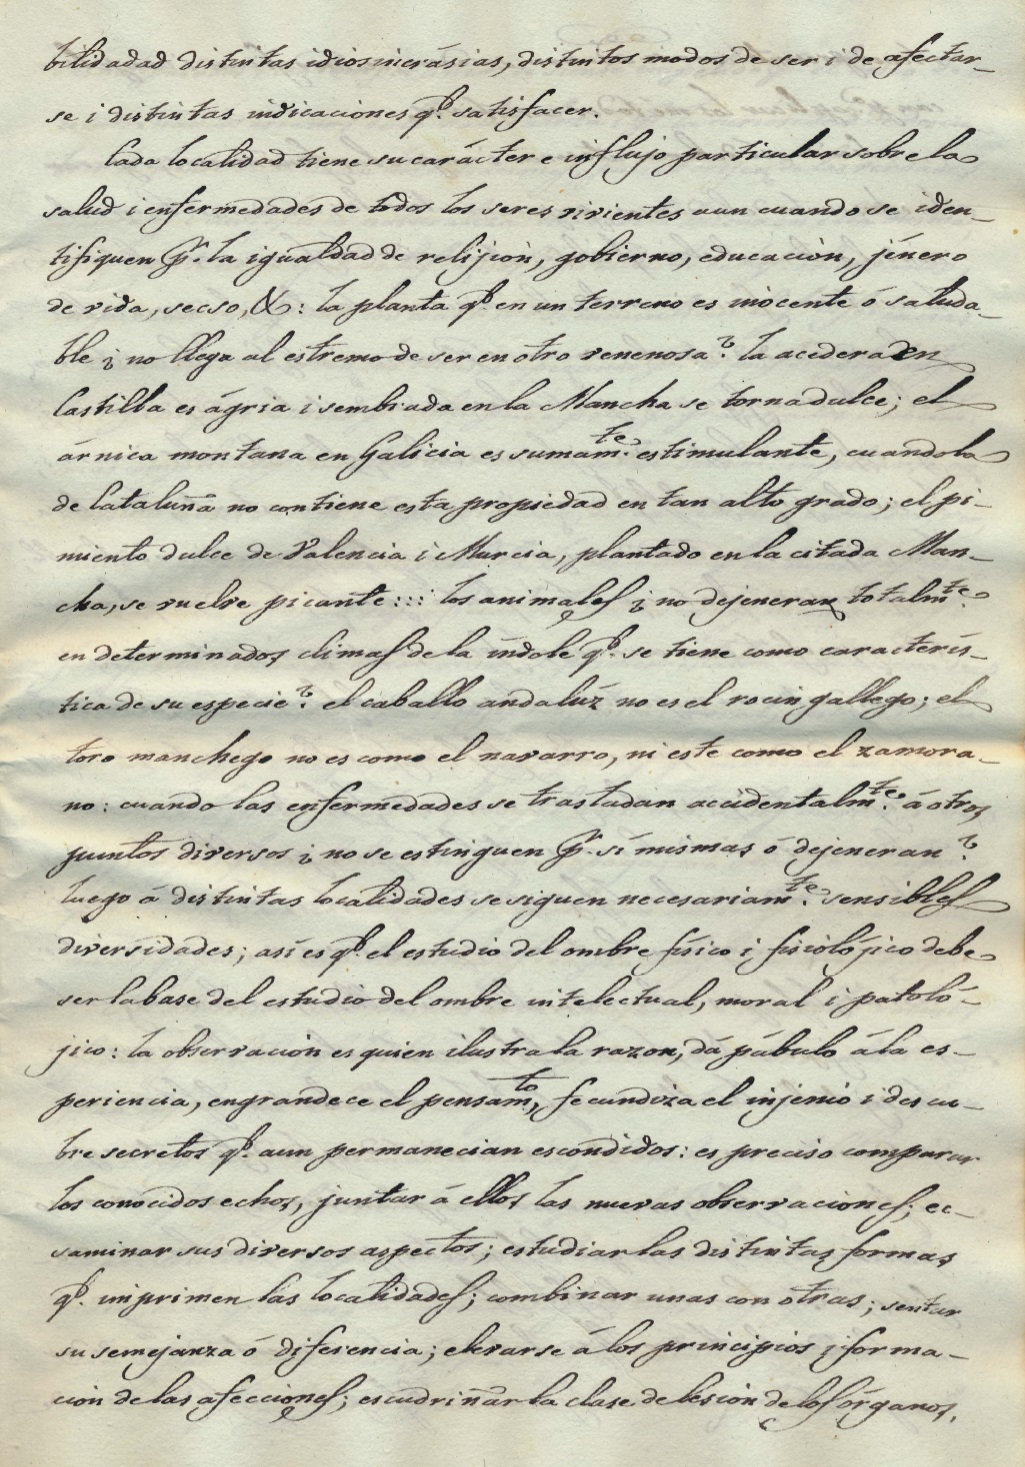 bilidadad distintas idiosincrásias, distintos modos de ser i de afectar-
se i distintas indicaciones q.e satisfacer.
Cada localidad tiene su carácter e influjo particular sobre la
salud i enfermedades de todos los seres vivientes aun cuando se iden-
tifiquen p.r la igualdad de relijiòn, gobierno, educaciòn, jénero
de vida, secso, &: la planta q.e en un terreno es inocente ó saluda-
ble ¿no llega al estremo de ser en otro venenosa? la acedera en
Castilla es ágria i sembrada en la Mancha se torna dulce; el
árnica montana en Galicia es sumam.te estimulante, cuando la
de Cataluña no contiene esta propiedad en tan alto grado; el pi-
miento dulce de Valencia i Murcia, plantado en la citada Man-
cha, se vuelve picante::: los animales ¿no dejeneran totalm.te
en determinados climas de la índole q.e se tiene como caracterís-
tica de su especie? el caballo andalúz no es el rocin gallego; el
toro manchego no es como el navarro, ni este como el zamora-
no: cuando las enfermedades se trasladan accidentalm.te á otros
puntos diversos ¿no se estinguen p.r sí mismas ó dejeneran?
luego á distintas localidades se siguen necesariam.te sensibles
diversidades; así es q.e el estudio del ombre físico i fisiolójico debe
ser la base del estudio del ombre intelectual, moral i patoló-
jico: la observaciòn es quien ilustra la razon, dá pábulo á la es-
periencia, engrandece el pensam.to, fecundiza el injenio i descu-
bre secretos q.e aun permanecian escondidos: es preciso comparar
los conocidos echos, juntar á ellos las nuevas observaciones; ec-
saminar sus diversos aspectos; estudiar las distintas formas
q.e imprimen las localidades; combinar unas con otras; sentar
su semejanza ó diferencia; elevarse á los principios i forma-
cion de las afecciones; escudriñar la clase de lesion de los órganos,